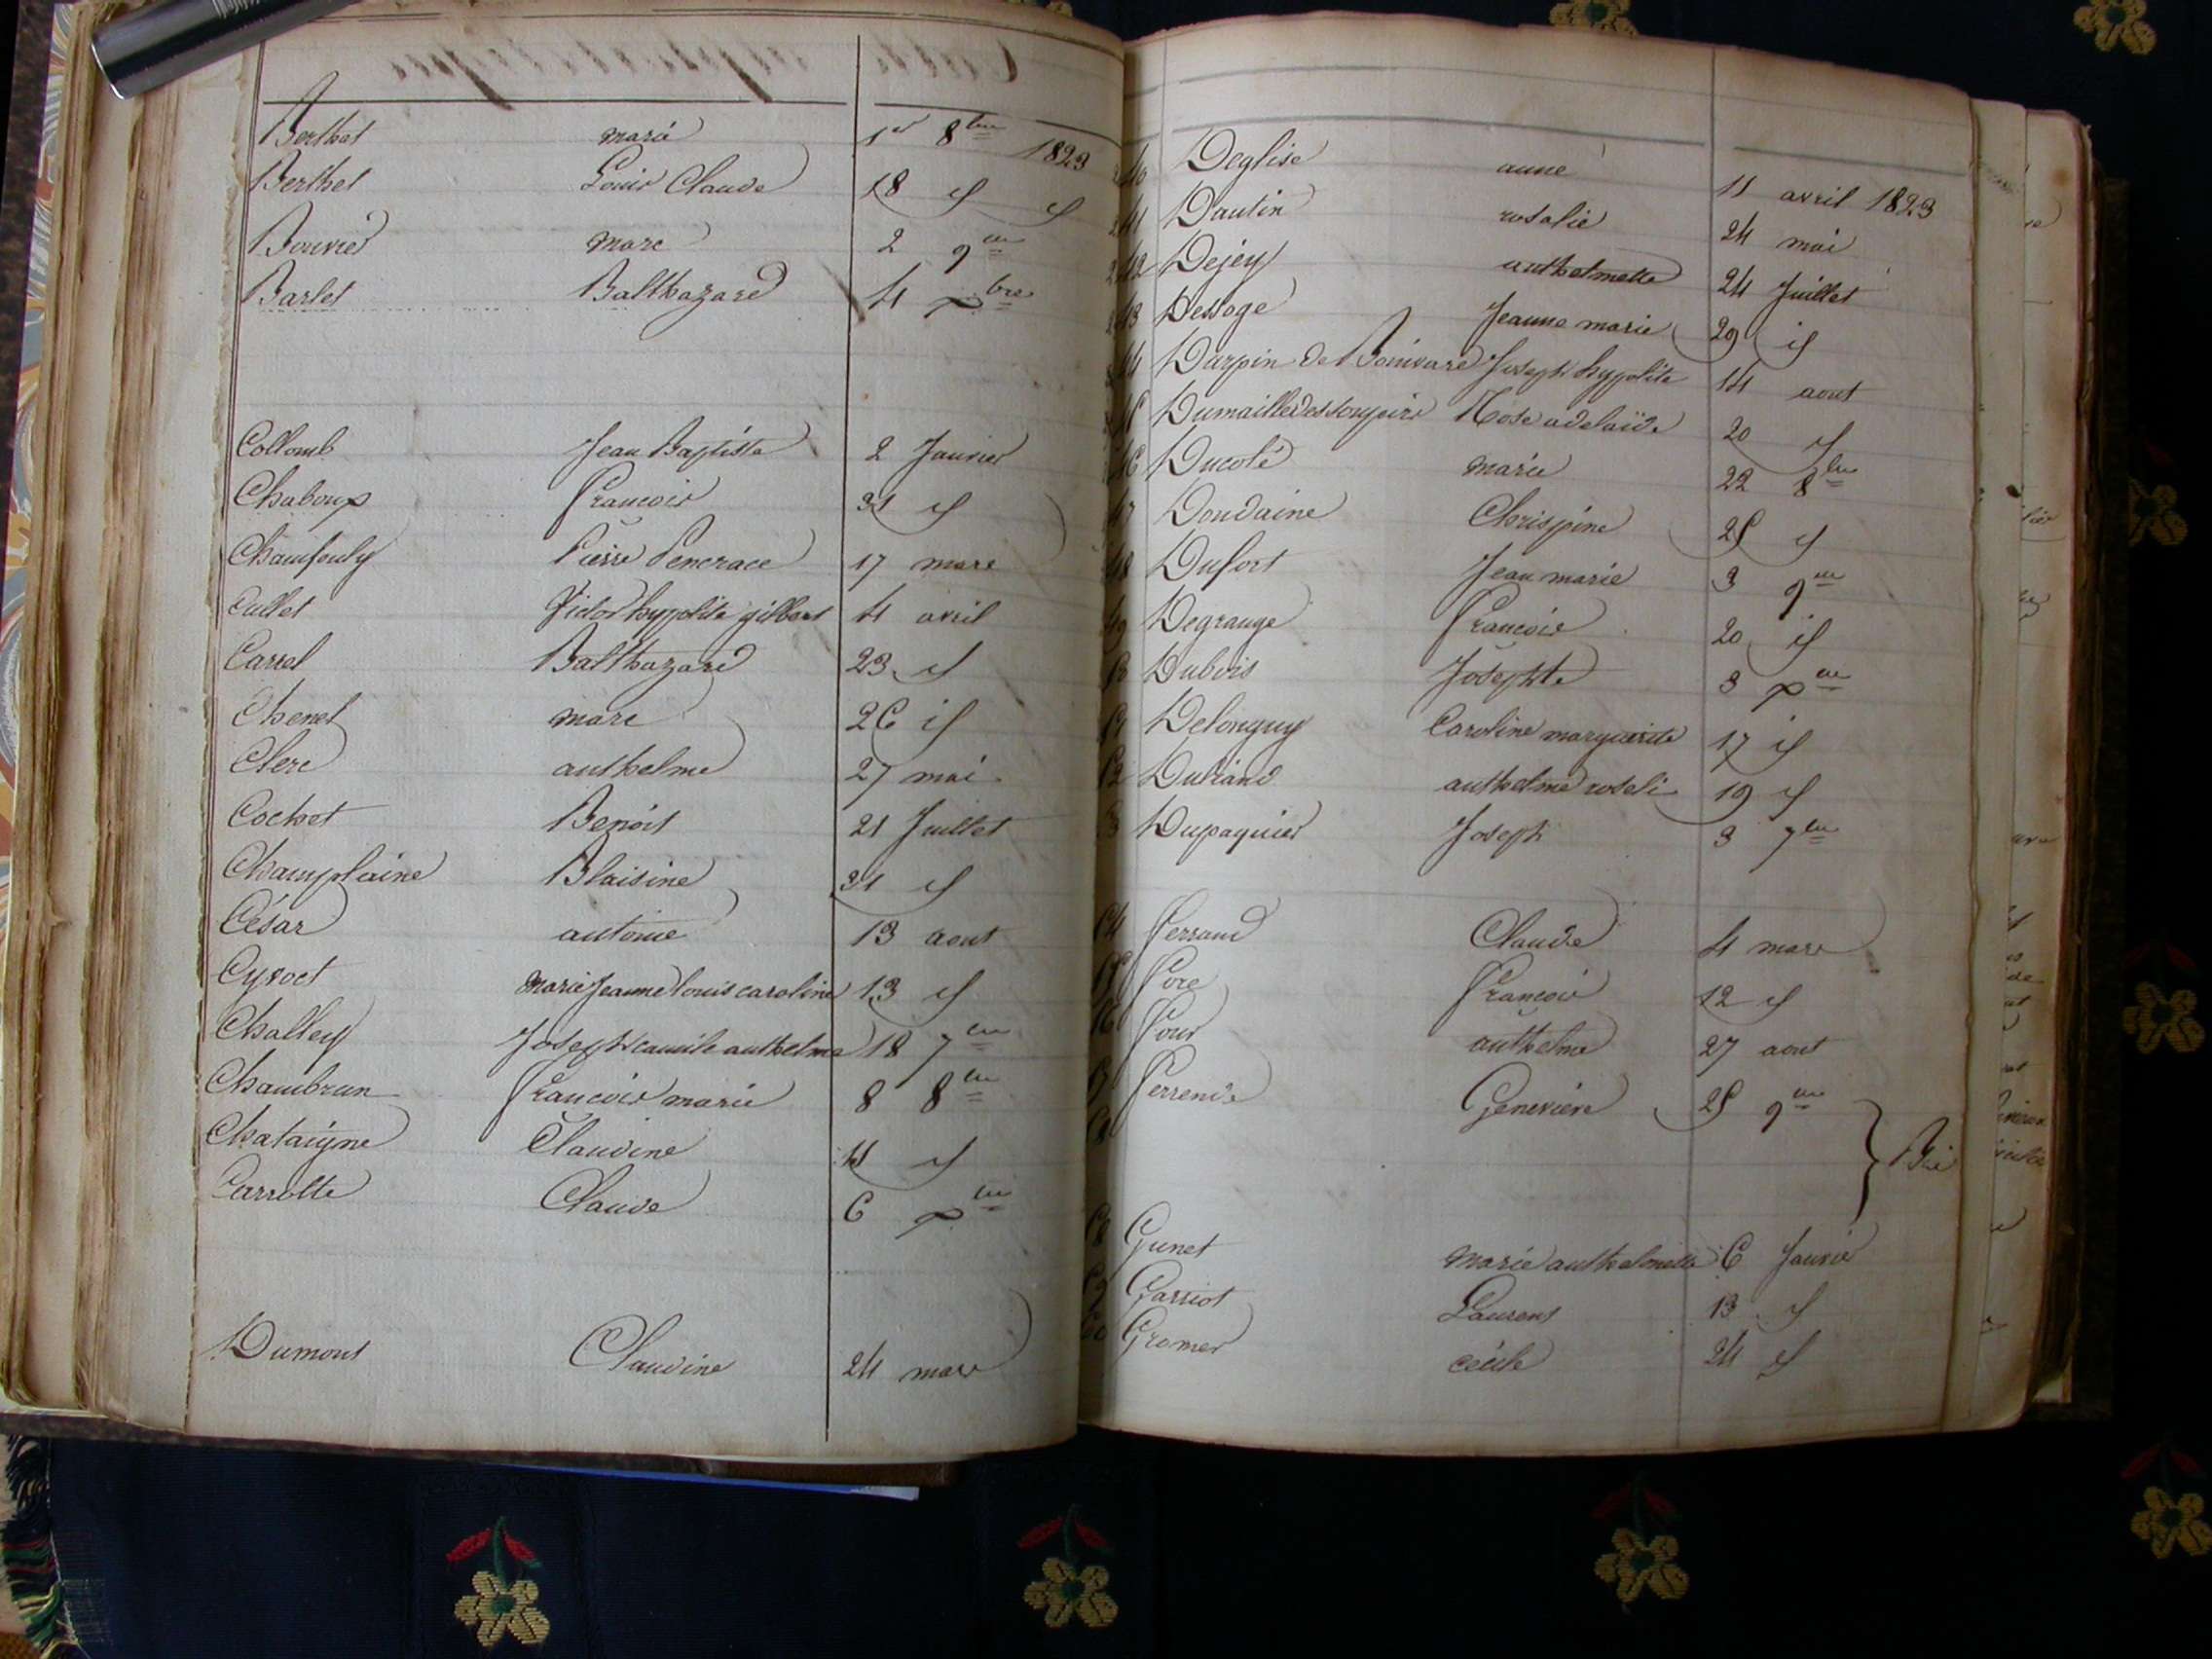 Berthet marie 1er 8bre 1823
Berthet Louis Claude 18 id id
Bouvier marc 2 9bre
Barlet Balthazard 4 Xbre
Collomb Jean Baptiste 2 Janvier
Chaboux francois 31 id
Chamfouly Pierre Pencrace 17 mars
Cullet Victor hyppolite gilbert 4 avril
Carrel Balthazard 23 id
Chenet marc 26 id
Clerc anthelme 27 mai
Cochet Benoit 21 Juillet
Champlaine Blaisine 31 id
César antoine 13 aout
Cyvoct marie Jeanne louis caroline 13 id
Challey Joseph camile anthelme 18 7bre
Chambrun francois marie 8 8bre
Chataigne Claudine 11 id
Carrotte Claude 6 Xbre
Dumont Claudine 24 mars
Deglise anne 11 avril 1823
Dantin rosalie 24 mai
Dejey anthelmette 24 Juillet
Dessoge Jeanne marie 29 id
Durpin de Joseph hyppolite 14 aout
Rose adelaïde 20 id
Ducoté marie 22 8bre
Dondaine Chrispine 25 id
Dufort Jean marie 3 9bre
Degrange francois 20 id
Dubois Josephte 3 Xbre
Delonguy Caroline marguerite 17 id
Durand anthelme roseli 19 id
Dupaquier Joseph 3 7bre
ferrand Claude 4 mars
fore francois 12 id
four anthelme 27 aout
ferrende Genevieve 25 9bre
Gunet marie anthelmette 6 Janvier
Garriot Laurent 13 id
Gromer cécile 24 id